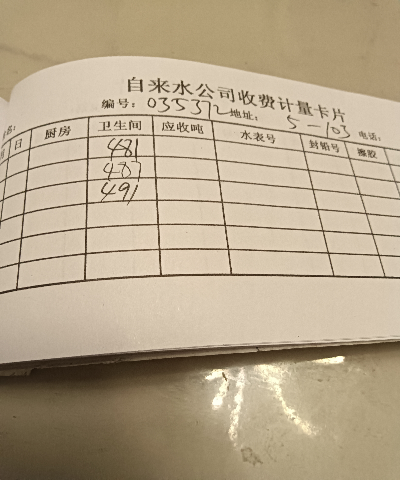 自来水公司收费计量卡片
编号：035372 地址：5-103 电话：
名：
月 日 厨房 卫生间 应收吨 水表号 封铅号 橡胶
481
487
491